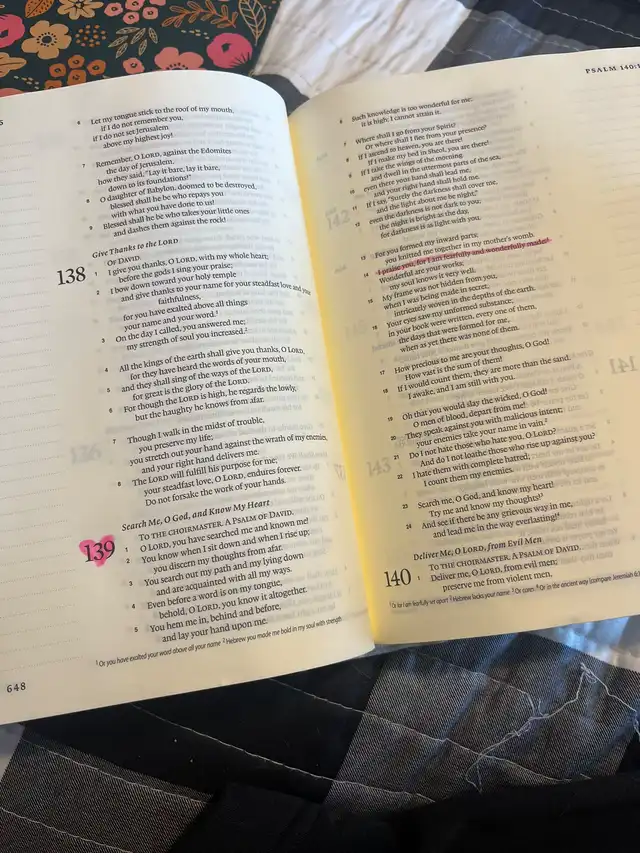 6 Let my tongue stick to the roof of my mouth,
if I do not remember you,
if I do not set Jerusalem
above my highest joy!
7 Remember, O LORD, against the Edomites
the day of Jerusalem,
how they said, "Lay it bare, lay it bare,
down to its foundations!"
8 O daughter of Babylon, doomed to be destroyed,
blessed shall he be who repays you
with what you have done to us!
9 Blessed shall he be who takes your little ones
and dashes them against the rock!
Give Thanks to the LORD
138 OF DAVID.
1 I give you thanks, O LORD, with my whole heart;
before the gods I sing your praise;
2 I bow down toward your holy temple
and give thanks to your name for your steadfast love and your
faithfulness,
for you have exalted above all things
your name and your word.¹
3 On the day I called, you answered me;
my strength of soul you increased.²
4 All the kings of the earth shall give you thanks, O LORD,
for they have heard the words of your mouth,
5 and they shall sing of the ways of the LORD,
for great is the glory of the LORD.
6 For though the LORD is high, he regards the lowly,
but the haughty he knows from afar.
7 Though I walk in the midst of trouble,
you preserve my life;
you stretch out your hand against the wrath of my enemies,
and your right hand delivers me.
8 The LORD will fulfill his purpose for me;
your steadfast love, O LORD, endures forever.
Do not forsake the work of your hands.
Search Me, O God, and Know My Heart
139 TO THE CHOIRMASTER. A PSALM OF DAVID.
1 O LORD, you have searched me and known me!
2 You know when I sit down and when I rise up;
you discern my thoughts from afar.
3 You search out my path and my lying down
and are acquainted with all my ways.
4 Even before a word is on my tongue,
behold, O LORD, you know it altogether.
5 You hem me in, behind and before,
and lay your hand upon me.
¹ Or you have exalted your word above all your name ² Hebrew you made me bold in my soul with strength
648
PSALM 140:1
6 Such knowledge is too wonderful for me;
it is high; I cannot attain it.
7 Where shall I go from your Spirit?
Or where shall I flee from your presence?
8 If I ascend to heaven, you are there!
If I make my bed in Sheol, you are there!
9 If I take the wings of the morning
and dwell in the uttermost parts of the sea,
10 even there your hand shall lead me,
and your right hand shall hold me.
11 If I say, "Surely the darkness shall cover me,
and the light about me be night,"
12 even the darkness is not dark to you;
the night is bright as the day,
for darkness is as light with you.
13 For you formed my inward parts;
you knitted me together in my mother's womb.
14 I praise you, for I am fearfully and wonderfully made.¹
Wonderful are your works;
my soul knows it very well.
15 My frame was not hidden from you,
when I was being made in secret,
intricately woven in the depths of the earth.
16 Your eyes saw my unformed substance;
in your book were written, every one of them,
the days that were formed for me,
when as yet there was none of them.
17 How precious to me are your thoughts, O God!
How vast is the sum of them!
18 If I would count them, they are more than the sand.
I awake, and I am still with you.
19 Oh that you would slay the wicked, O God!
O men of blood, depart from me!
20 They speak against you with malicious intent;
your enemies take your name in vain.²
21 Do I not hate those who hate you, O LORD?
And do I not loathe those who rise up against you?
22 I hate them with complete hatred;
I count them my enemies.
23 Search me, O God, and know my heart!
Try me and know my thoughts!³
24 And see if there be any grievous way in me,
and lead me in the way everlasting!⁴
Deliver Me, O LORD, from Evil Men
140 TO THE CHOIRMASTER. A PSALM OF DAVID.
1 Deliver me, O LORD, from evil men;
preserve me from violent men,
¹ Or for I am fearfully set apart ² Hebrew lacks your name ³ Or cares ⁴ Or in the ancient way (compare Jeremiah 6:1